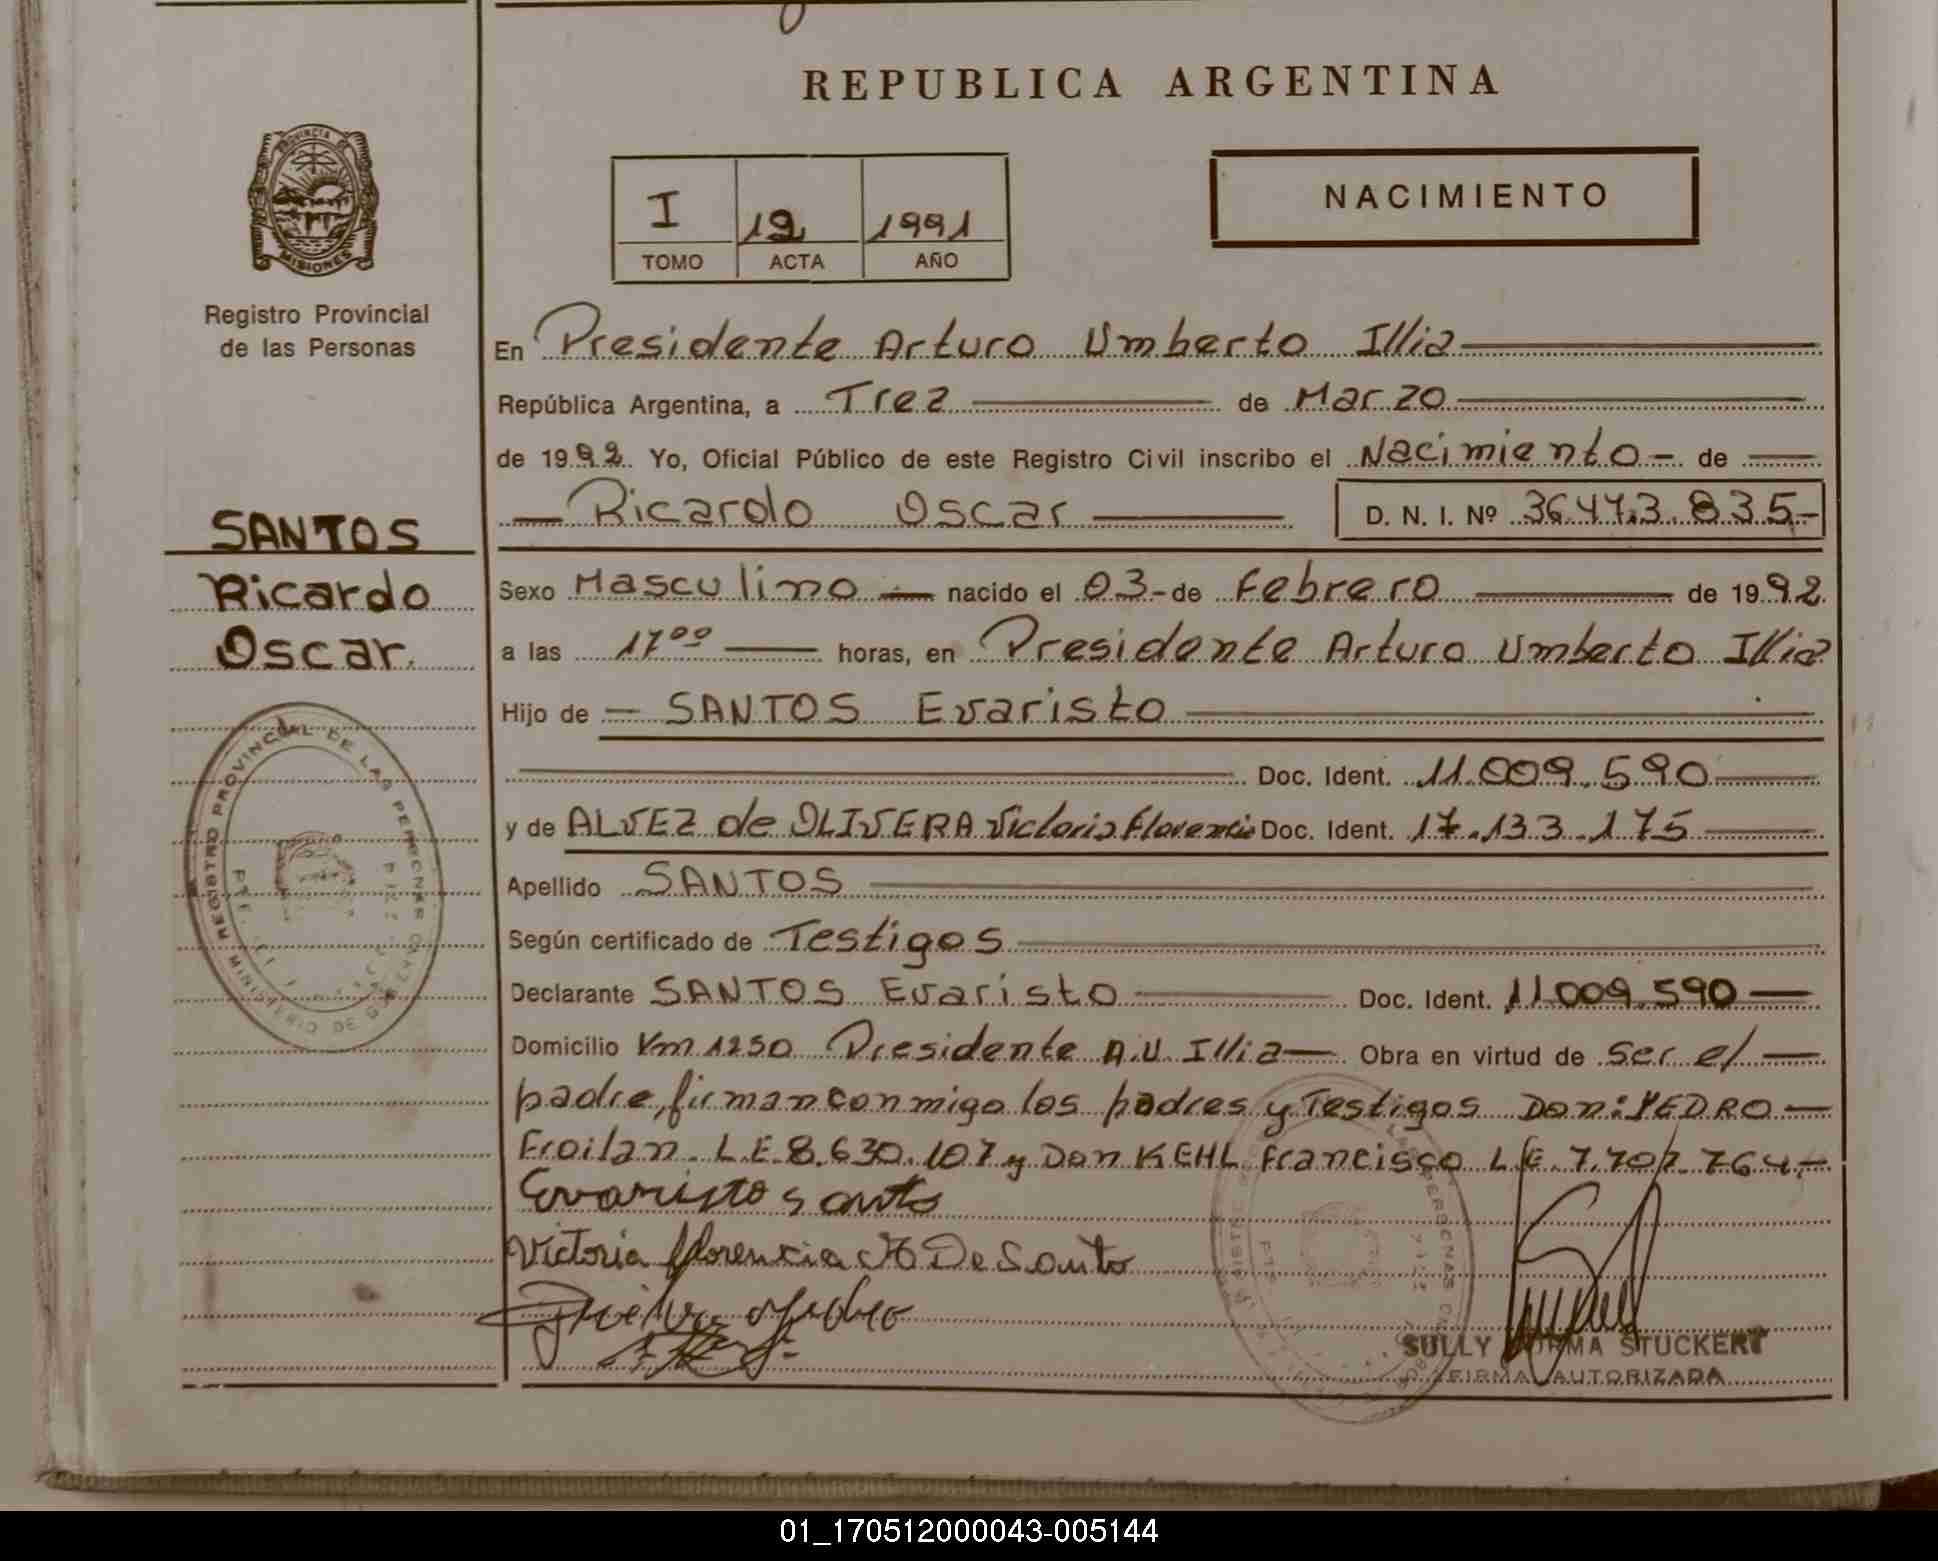 REPUBLICA ARGENTINA
PROVINCIA DE MISIONES
Registro Provincial
de las Personas
I 12 1991
TOMO ACTA AÑO
NACIMIENTO
En Presidente Arturo Umberto Illia
República Argentina, a Trez de Marzo
de 1992. Yo, Oficial Público de este Registro Civil inscribo el Nacimiento - de
Ricardo Oscar D. N. I. Nº 36.473.835-
SANTOS
Ricardo
Oscar.
Sexo Masculino nacido el 03-de Febrero de 1992.
a las 17⁰⁰ horas, en Presidente Arturo Umberto Illia
Hijo de - SANTOS Evaristo
Doc. Ident. 11.009.590
y de ALVEZ de OLIVERA Victoria Florencia Doc. Ident. 17.133.175
Apellido SANTOS
Según certificado de Testigos
Declarante SANTOS Evaristo Doc. Ident. 11.009.590
Domicilio Km 1250 Presidente A.U. Illia Obra en virtud de ser el
padre, firman conmigo los padres y Testigos Don: YEDRO
Froilan. L.E. 8.630.107 y Don KEHL Francisco L.E. 7.707.764.-
Evaristo santo
Victoria florencia A De Santo
REGISTRO PROVINCIAL DE LAS PERSONAS
MINISTERIO DE GOBIERNO
SULLY NORMA STUCKERT
FIRMA AUTORIZADA
01_170512000043-005144